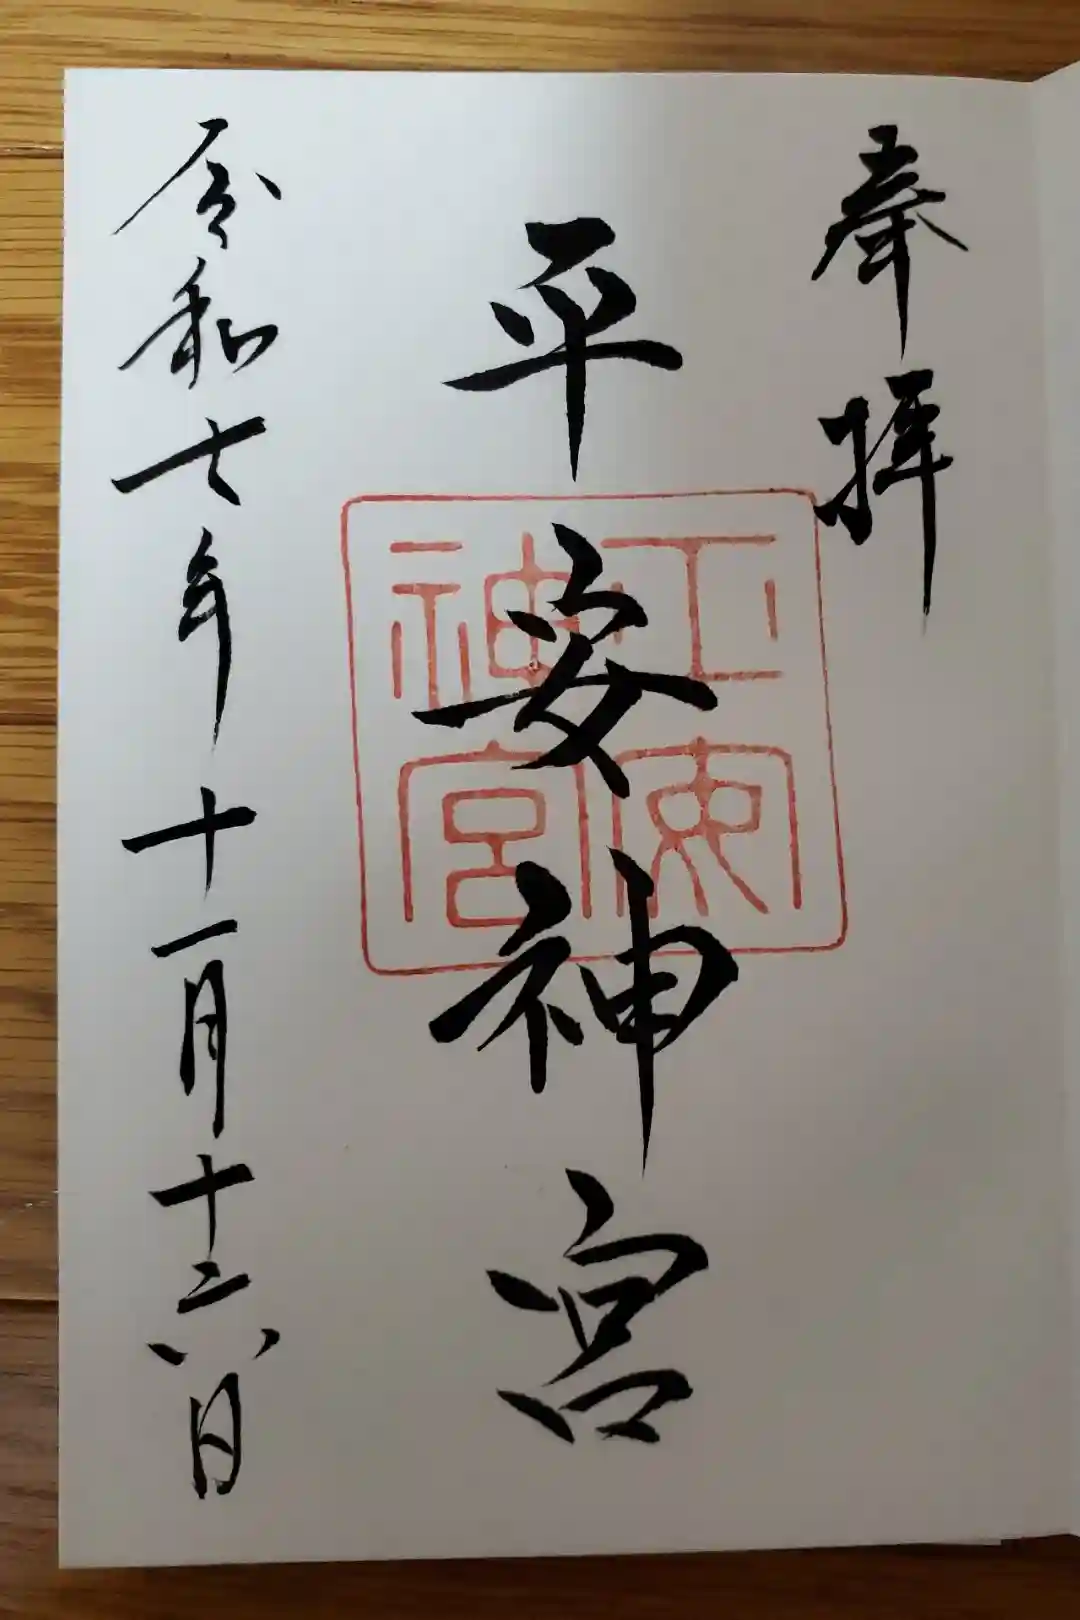 奉拝
平安神宮
平安
神宮
令和七年十一月十六日